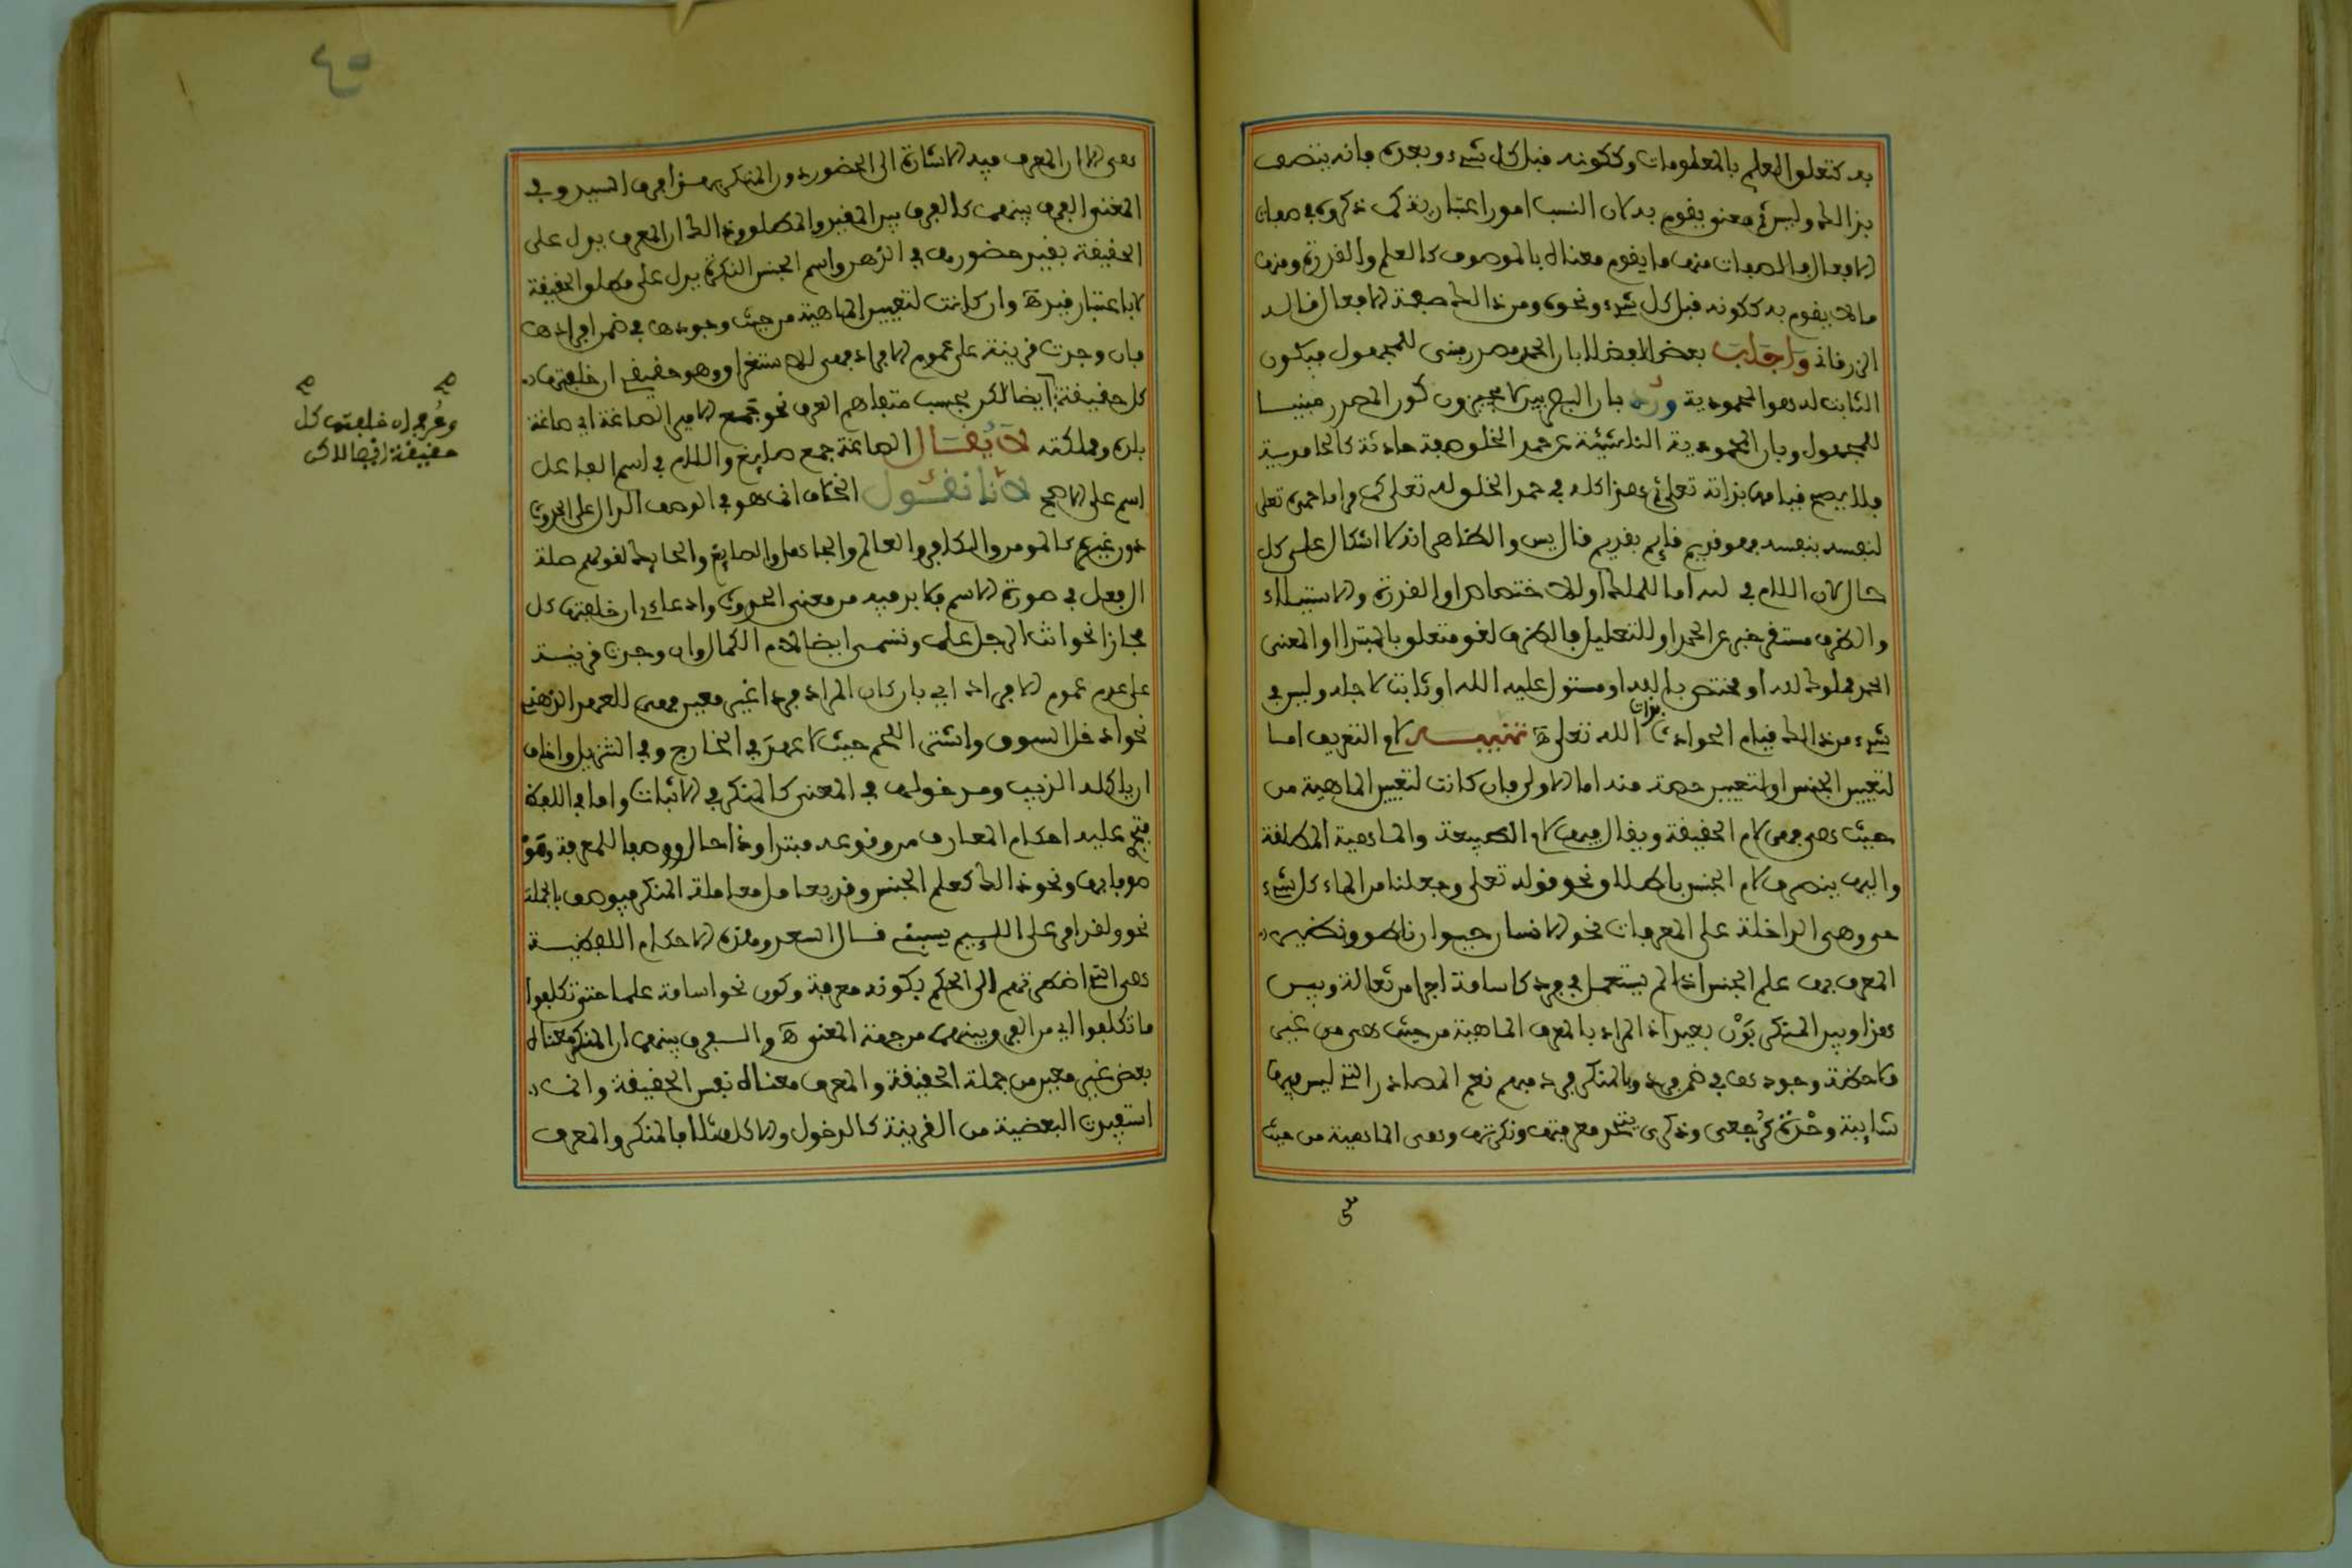 به كتعلق العلم بالمعلومات وككونه قبل كل شيء وبعده فانه يتصف
بذالك وليس ثم معنى يقوم به لان النسب امور اعتبارية كما ذكروه في صفات
الافعال فالصفات منها ما يقوم معناه بالموصوف كالعلم والقدرة ومنها
ما لا يقوم به ككونه قبل كل شيء ونحوه ومن ذالك صفة الافعال قاله
الزرقاني واجاب بعض الفضلا بان الحمد مصدر مبني للمجهول فيكون
الثابت له هو المحمودية ورد بان البصريين لا يجيزون كون المصدر مبنيا
للمجهول وبان المحمودية الناشئة عن حمد الخلق صفة حادثة كالحامدية
فلا يصح قيامها بذاته تعلى ثم هذا كله في حمد الخلق له تعلى كما واما حمده تعلى
لنفسه بنفسه فهو قديم قايم بقديم قال يس والظاهر انه لا اشكال على كل
حال لان اللام في لله اما للملك او للاختصاص او القدرة والاستيلاء
والظرف مستقر خبر عن الحمد او للتعليل فالظرف لغو متعلق بالمبتدا او المعنى
الحمد مملوك لله او مختص بالله او مستول عليه الله او ثابت لاجله وليس في
شيء من ذالك قيام الحوادث بذات الله تعلى ه تنبيه لام التعريف اما
لتعيين الجنس او لتعيين حصة منه اما الاول فان كانت لتعيين الماهية من
حيث هي فهي لام الحقيقة ويقال فيها لام الطبيعة والماهية المطلقة
واليها ينصرف لام الجنس باطلاق نحو قوله تعلى وجعلنا من الماء كل شيء
حي وهي الداخلة على المعرفات نحو الانسان حيوان ناطق ونظير
المعرف بها علم الجنس اذا لم يستعمل في فرد كاسامة اجرا من ثعالة وبين
هذا وبين المنكر بون بعيد اذ المراد بالمعرف الماهية من حيث هي من غير
ملاحظة وجودها في ضمن فرد وبالمنكر فرد مبهم نعم المصادر التي ليس فيها
شايبة وحدة كرجعى وذكرى يتحد معرفتها ونكرتها وهي الماهية من حيث
هي
٤٥
هي الا ان المعرف فيه الاشارة الى الحضور دون المنكر هذا فرق السيد وفي
المغني الفرق بينهما كالفرق بين المقيد والمطلق وذالك ان المعرف يدل على
الحقيقة بقيد حضورها في الذهن واسم الجنس النكرة يدل على مطلق الحقيقة
لا باعتبار قيد ه وان كانت لتعيين الماهية من حيث وجودها في ضمن افرادها
فان وجدت قرينة على عموم الافراد فهي للاستغراق وهو حقيقي ان خلفتها
كل حقيقة ايضا لكن بحسب متفاهم العرف نحو جمع الامير الصاغة اي صاغة
بلده ومملكته لا يقال الصاغة جمع صايغ واللام في اسم الفاعل
اسم على الاصح لانا نقول الخلاف انما هو في الوصف الدال على الحدوث
دون غيره كالمومن والكافر والعالم والجاهل والصايغ والحايك لقولهم صلة
ال فعل في صورة الاسم فلا بد فيه من معنى الحدوث وادعائي ان خلفتها كل
مجازا نحو انت الرجل علما وتسمى ايضا لام الكمال وان وجدت قرينة
على عدم عموم الافراد اي بان كان المراد فردا غير معين فهي للعهد الذهني
نحو ادخل السوق واشتر اللحم حيث لا عهد في الخارج وفي التنزيل واخاف
ان ياكله الذيب ومدخولها في المعنى كالمنكر في الاثبات واما في اللفظ
فتجري عليه احكام المعارف من وقوعه مبتدا وذا حال ووصفا للمعرفة وهو
موصوف بها ونحو ذالك كعلم الجنس وقد يعامل معاملة المنكر فيوصف بالجملة
نحو ولقد امر على اللييم يسبني قال السعد وهذه الاحكام اللفظية
هي التي اضطرتهم الى الحكم بكونه معرفة وكون نحو اسامة علما حتى تكلفوا
ما تكلفوا اي من الفرق بينهما من جهة المعنى ه والفرق بينهما ان المنكر معناه
بعض غير معين من جملة الحقيقة والمعرف معناه نفس الحقيقة وانما
استفيدت البعضية من القرينة كالدخول والاكل مثلا فالمنكر والمعرف
صح صح
وعرفي ان خلفتها كل
حقيقة ايضا لاكن